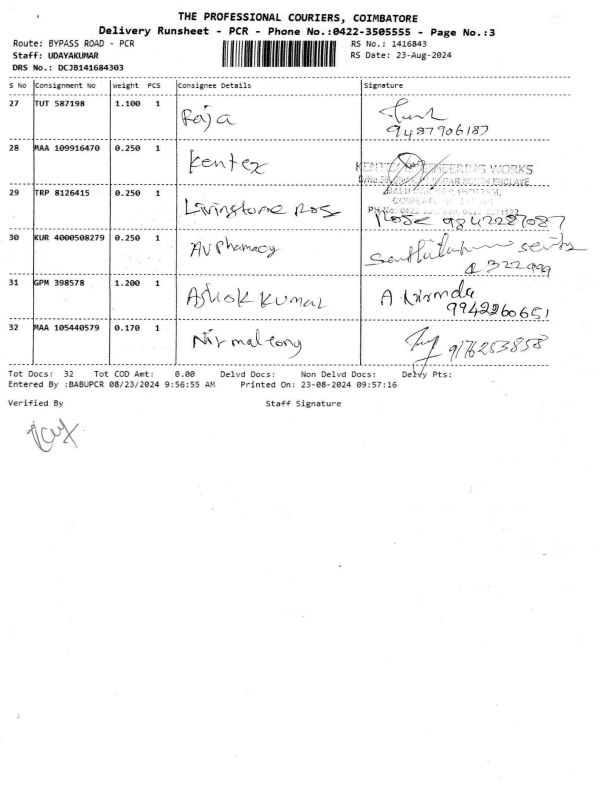 THE PROFESSIONAL COURIERS, COIMBATORE
Delivery Runsheet - PCR - Phone No.:0422-3505555 - Page No.:3
Route: BYPASS ROAD - PCR RS No.: 1416843
Staff: UDAYAKUMAR RS Date: 23-Aug-2024
DRS No.: DCJB141684303
S No Consignment No Weight PCS Consignee Details Signature
27 TUT 587198 1.100 1 Raja
9487906187
28 MAA 109916470 0.250 1 Kentex
ENGINEERING WORKS
29 TRP 8126415 0.250 1 Livingstone Rose
Rose 9842287087
30 KUR 4000508279 0.250 1 AV Pharmacy
4322999
31 GPM 398578 1.200 1 Ashok Kumar A Nirmala
9942260651
32 MAA 105440579 0.170 1 Nirmal
9176253858
Tot Docs: 32 Tot COD Amt: 0.00 Delvd Docs: Non Delvd Docs: Delvy Pts:
Entered By :BABUPCR 08/23/2024 9:56:55 AM Printed On: 23-08-2024 09:57:16
Verified By Staff Signature